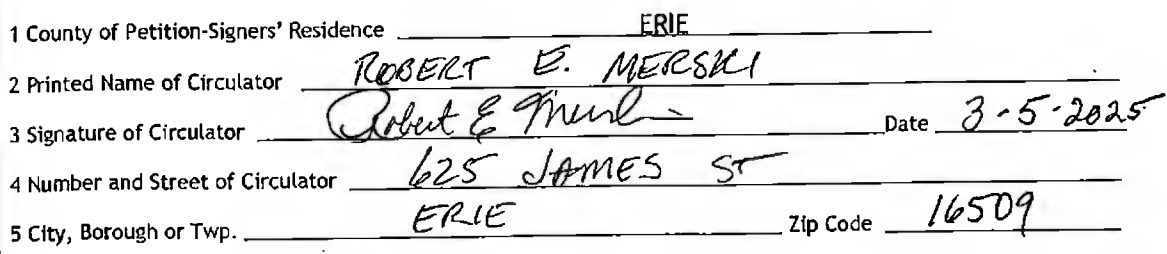 1 County of Petition-Signers' Residence ERIE
2 Printed Name of Circulator ROBERT E. MERSKI
3 Signature of Circulator Robert E Merski Date 3-5-2025
4 Number and Street of Circulator 625 JAMES ST
5 City, Borough or Twp. ERIE Zip Code 16509